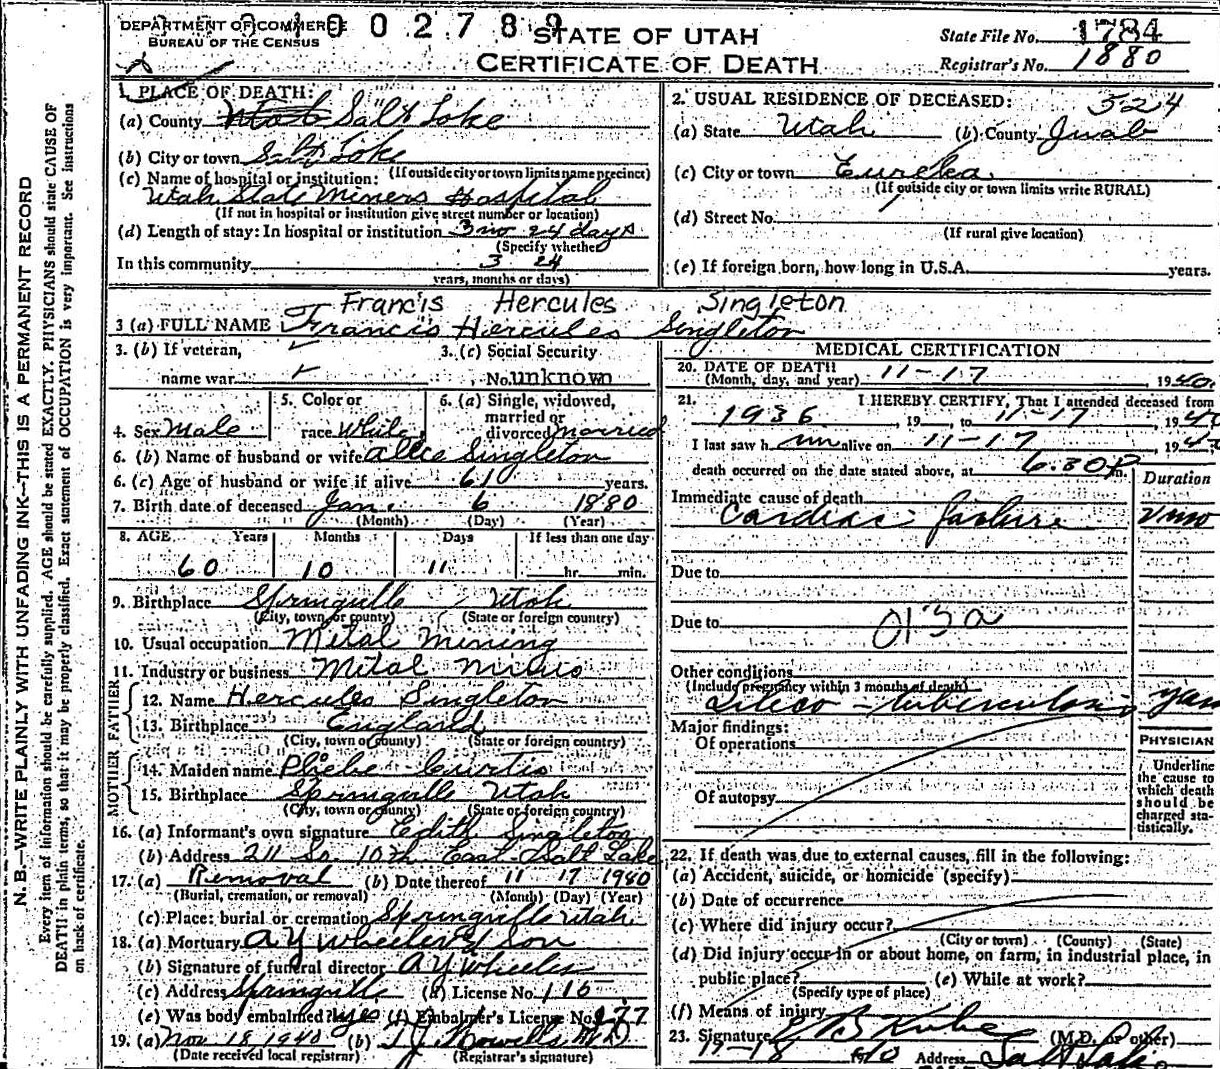 DEPARTMENT OF COMMERCE
BUREAU OF THE CENSUS
1002789
STATE OF UTAH
CERTIFICATE OF DEATH
State File No. 1784
Registrar's No. 1880
1. PLACE OF DEATH:
(a) County Utah Salt Lake
(b) City or town Salt Lake
(If outside city or town limits name precinct)
(c) Name of hospital or institution:
Utah State Miners Hospital
(If not in hospital or institution give street number or location)
(d) Length of stay: In hospital or institution 3 mo 24 days
(Specify whether
In this community 3 24
years, months or days)
2. USUAL RESIDENCE OF DECEASED: 524
(a) State Utah (b) County Juab
(c) City or town Eureka
(If outside city or town limits write RURAL)
(d) Street No.
(If rural give location)
(e) If foreign born, how long in U.S.A. years.
Francis Hercules Singleton
3 (a) FULL NAME Francis Hercules Singleton
3. (b) If veteran,
name war
3. (c) Social Security
No. unknown
4. Sex Male
5. Color or
race White
6. (a) Single, widowed,
married or
divorced married
6. (b) Name of husband or wife Alice Singleton
6. (c) Age of husband or wife if alive 610 years.
7. Birth date of deceased Jan. 6 1880
(Month) (Day) (Year)
8. AGE Years Months Days If less than one day
60 10 11 hr. min.
9. Birthplace Springville Utah
(City, town or county) (State or foreign country)
10. Usual occupation Metal Mining
11. Industry or business Metal Mines
FATHER
12. Name Hercules Singleton
13. Birthplace England
(City, town or county) (State or foreign country)
MOTHER
14. Maiden name Phebe Curtis
15. Birthplace Springville Utah
(City, town or county) (State or foreign country)
16. (a) Informant's own signature Edith Singleton
(b) Address 211 So. 10th East Salt Lake
17. (a) Removal (b) Date thereof 11 17 1940
(Burial, cremation, or removal) (Month) (Day) (Year)
(c) Place: burial or cremation Springville Utah
18. (a) Mortuary A Y Wheeler & Son
(b) Signature of funeral director A Y Wheeler
(c) Address Springville (d) License No. 115
(e) Was body embalmed? yes (f) Embalmer's License No. 277
19. (a) Nov 18 1940 (b) T J Howells M D
(Date received local registrar) (Registrar's signature)
MEDICAL CERTIFICATION
20. DATE OF DEATH
(Month, day, and year) 11-17, 1940.
21. I HEREBY CERTIFY, That I attended deceased from
1936, 19 , to 11-17, 1940
I last saw him alive on 11-17 1940
death occurred on the date stated above, at 6.30 P m.
Duration
Immediate cause of death
Cardiac failure
Due to
Due to 013a
Other conditions
(Include pregnancy within 3 months of death)
Silico-tuberculosis
Major findings:
Of operations
Of autopsy
PHYSICIAN
Underline
the cause to
which death
should be
charged sta-
tistically.
22. If death was due to external causes, fill in the following:
(a) Accident, suicide, or homicide (specify)
(b) Date of occurrence
(c) Where did injury occur?
(City or town) (County) (State)
(d) Did injury occur in or about home, on farm, in industrial place, in
public place? (e) While at work?
(Specify type of place)
(f) Means of injury
23. Signature (M.D. or other)
Address Salt Lake
N. B.—WRITE PLAINLY WITH UNFADING INK—THIS IS A PERMANENT RECORD
Every item of information should be carefully supplied. AGE should be stated EXACTLY. PHYSICIANS should state CAUSE OF
DEATH in plain terms, so that it may be properly classified. Exact statement of OCCUPATION is very important. See instructions
on back of certificate.